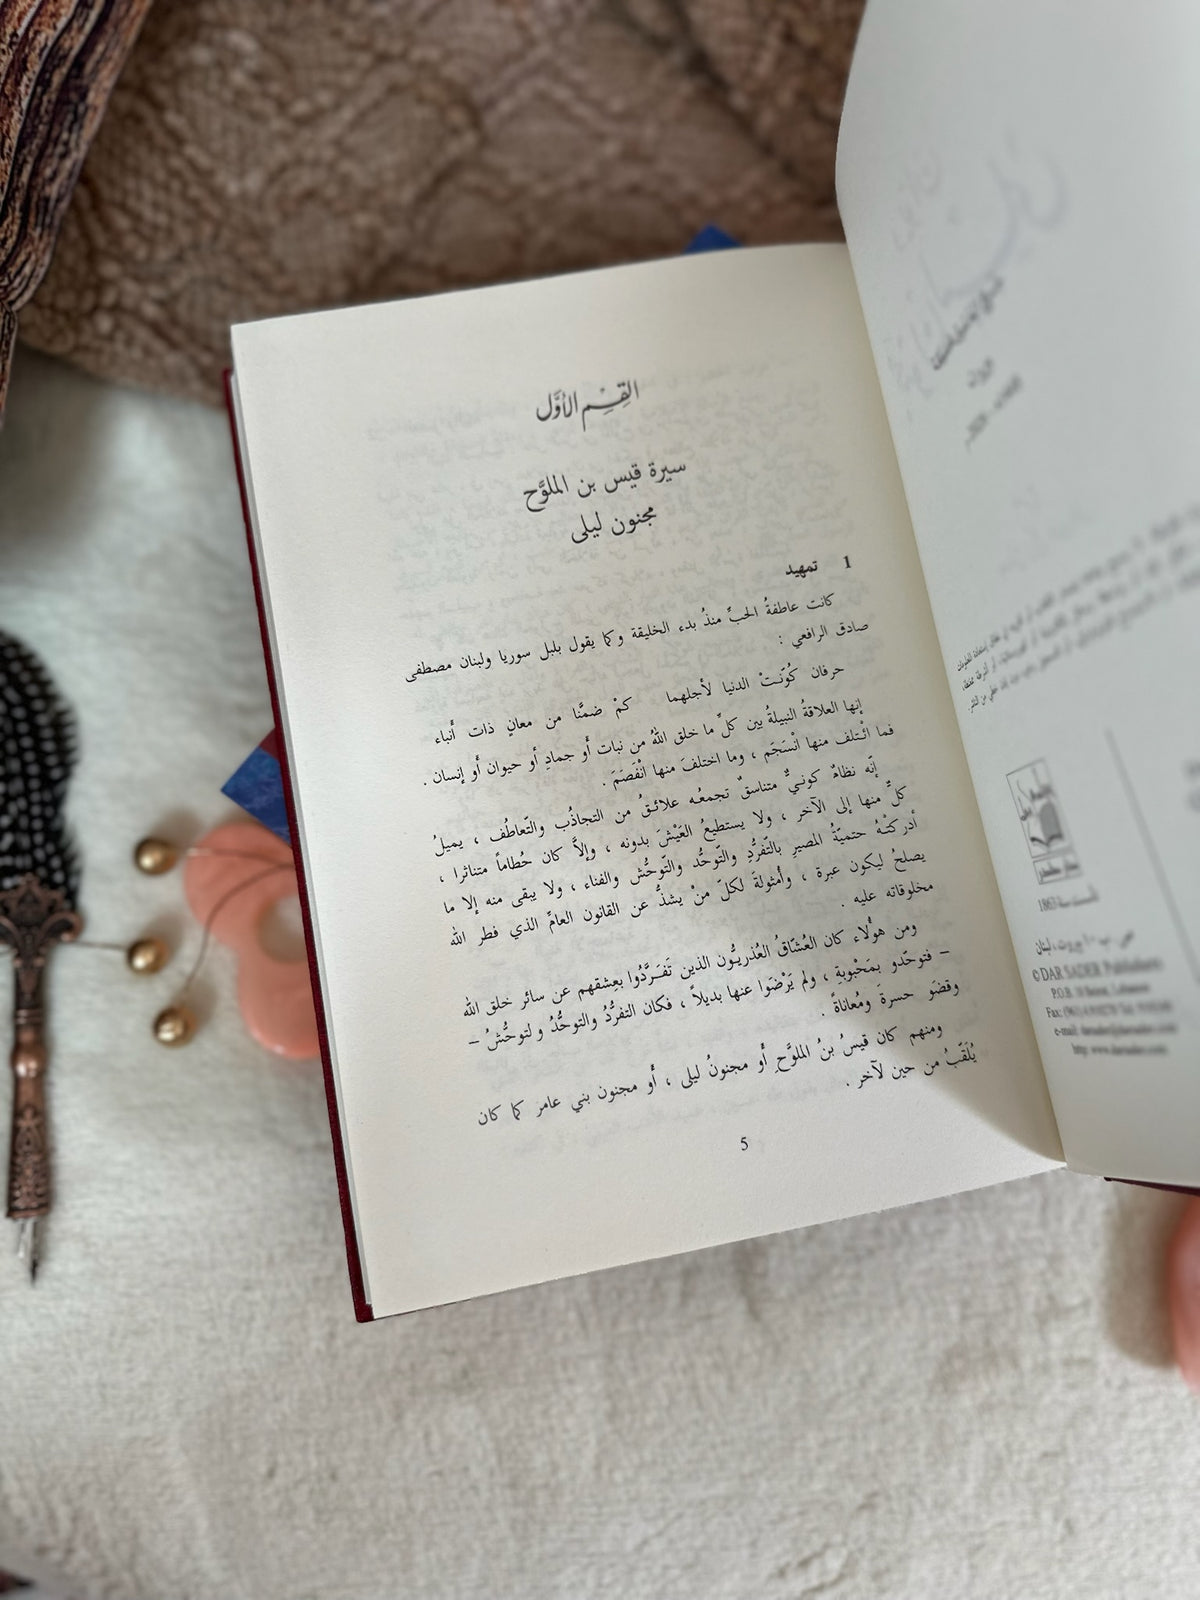 القِسْم الأوَّل
سيرة قيس بن الملوَّح
مجنون ليلى
1 تمهيد
كانت عاطفةُ الحبِّ منذُ بدء الخليقة وكما يقول بلبل سوريا ولبنان مصطفى
صادق الرافعي :
حرفان كُوّنتْ الدنيا لأجلهما كمْ ضمنَّا من معانٍ ذات أنباء
إنها العلاقةُ النبيلةُ بين كلِّ ما خلق اللهُ من نبات أو جمادِ أو حيوان أو إنسان .
فما ائتلف منها انْسَجَم ، وما اختلفَ منها انْفَصَمَ .
إنّه نظامٌ كونيٌّ متناسقٌ تجمعُه علائقُ من التجاذُب والتّعاطُف ، يميلُ
كلٌّ منها إلى الآخر ، ولا يستطيعُ العَيْشَ بدونه ، وإلاَّ كان حُطاماً متناثرا ،
أدركتْهُ حتميّةُ المصيرِ بالتّفرُّدِ والتّوحُّد والتّوحُّش والفناء ، ولا يبقى منه إلا ما
يصلحُ ليكون عبرة ، وأمثولةَ لكلّ منْ يشذُّ عن القانون العامِّ الذي فطر الله
مخلوقاته عليه .
ومن هؤلاء كان العُشّاقُ العُذريّون الذين تَفَرَّدُوا بعِشقهم عن سائر خلق الله
– فتوحّدو بمَحْبوبةٍ ، ولم يَرْضَوا عنها بديلاً ، فكان التفرُّدُ والتوحُّدُ ولتوحُّشُ –
وقضَو حسرةَ ومُعاناةً .
ومنهم كان قيسُ بنُ الملوَّحِ أو مجنونُ ليلى ، أو مجنون بني عامر كما كان
يُلَقّبُ من حين لآخر .
5
تأسست سنة 1863
ص . ب ١٠ بيروت ، لبنان
© DAR SADER Publishers
P.O.B. 10 Beirut, Lebanon